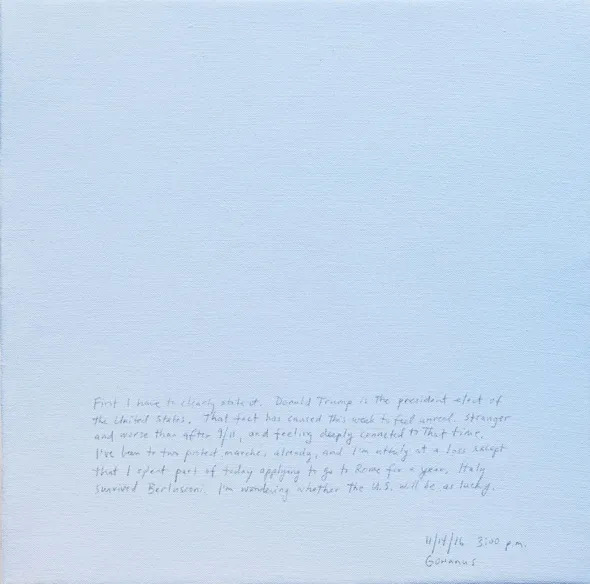 First I have to clearly state it. Donald Trump is the president elect of
the United States. That fact has caused this week to feel unreal. Stranger
and worse than after 9/11, and feeling deeply connected to that time.
I've been to two protest marches, already, and I'm utterly at a loss except
that I spent part of today applying to go to Rome for a year. Italy
survived Berlusconi. I'm wondering whether the U.S. will be as lucky.
3:00 p.m.
Gowanus